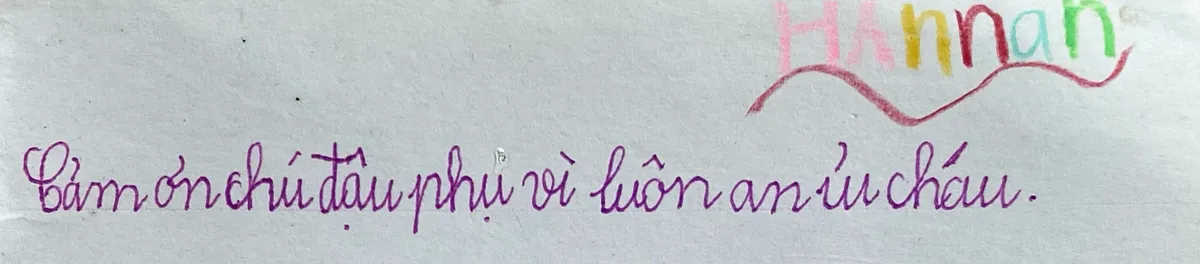 HAnnah
Cảm ơn chú đậu phụ vì luôn an ủi cháu.